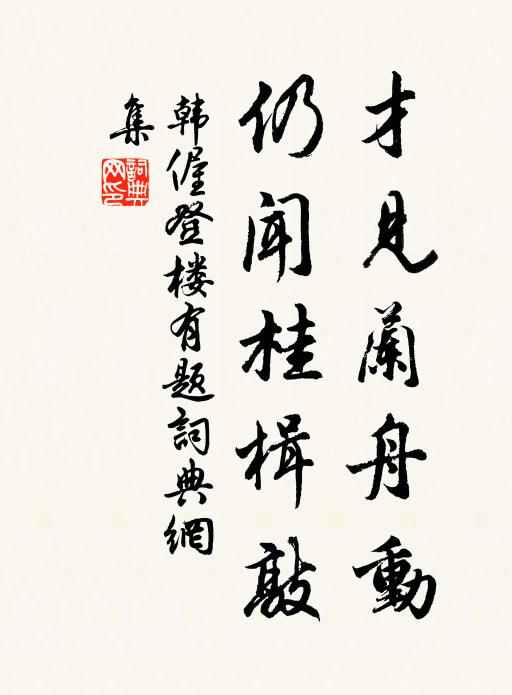 才見蘭舟動
仍聞桂楫敲
韩偓登楼有题詞典網
集
詞典網印